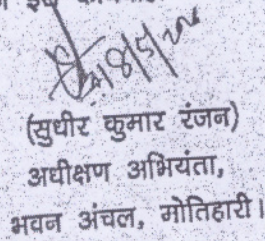 (सुधीर कुमार रंजन)
अधीक्षण अभियंता,
भवन अंचल, मोतिहारी।